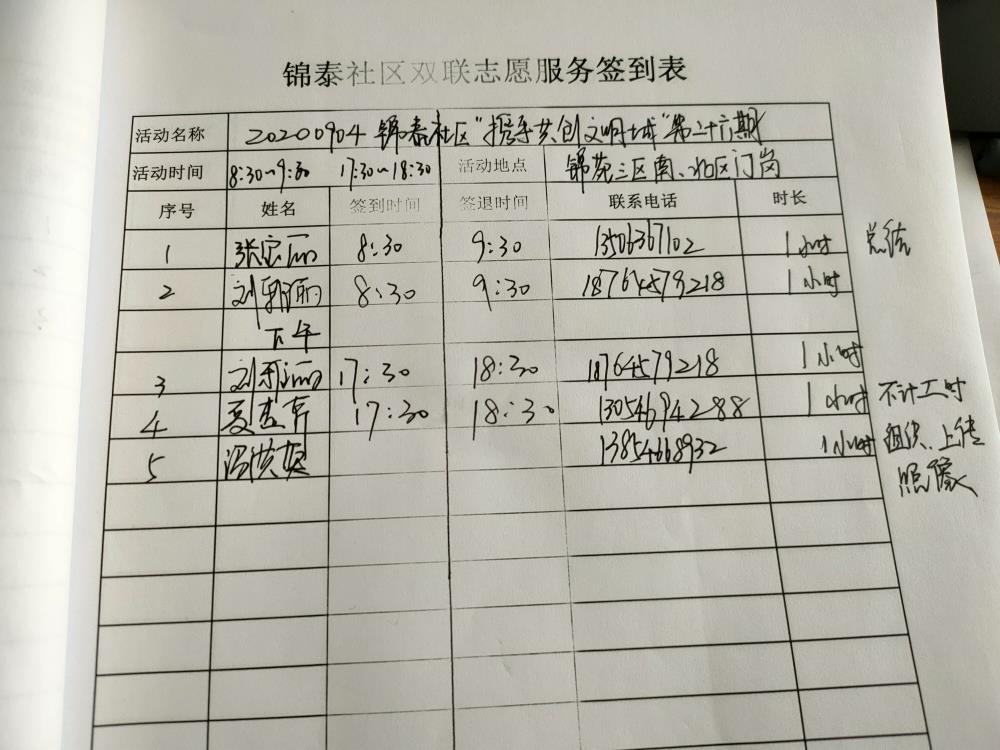 锦泰社区双联志愿服务签到表
活动名称 20200904 锦泰社区"携手共创文明城"第二十六期
活动时间 8:30~9:30 17:30~18:30 活动地点 锦苑三区南、北区门岗
序号 姓名 签到时间 签退时间 联系电话 时长
1 张宝丽 8:30 9:30 13506367102 1小时 总结
2 刘 丽 8:30 9:30 18764579218 1小时
下午
3 刘 丽 17:30 18:30 18764579218 1小时
4 夏 17:30 18:30 13054694288 1小时 不计工时
5 13854668932 1小时 组织、上传
照像